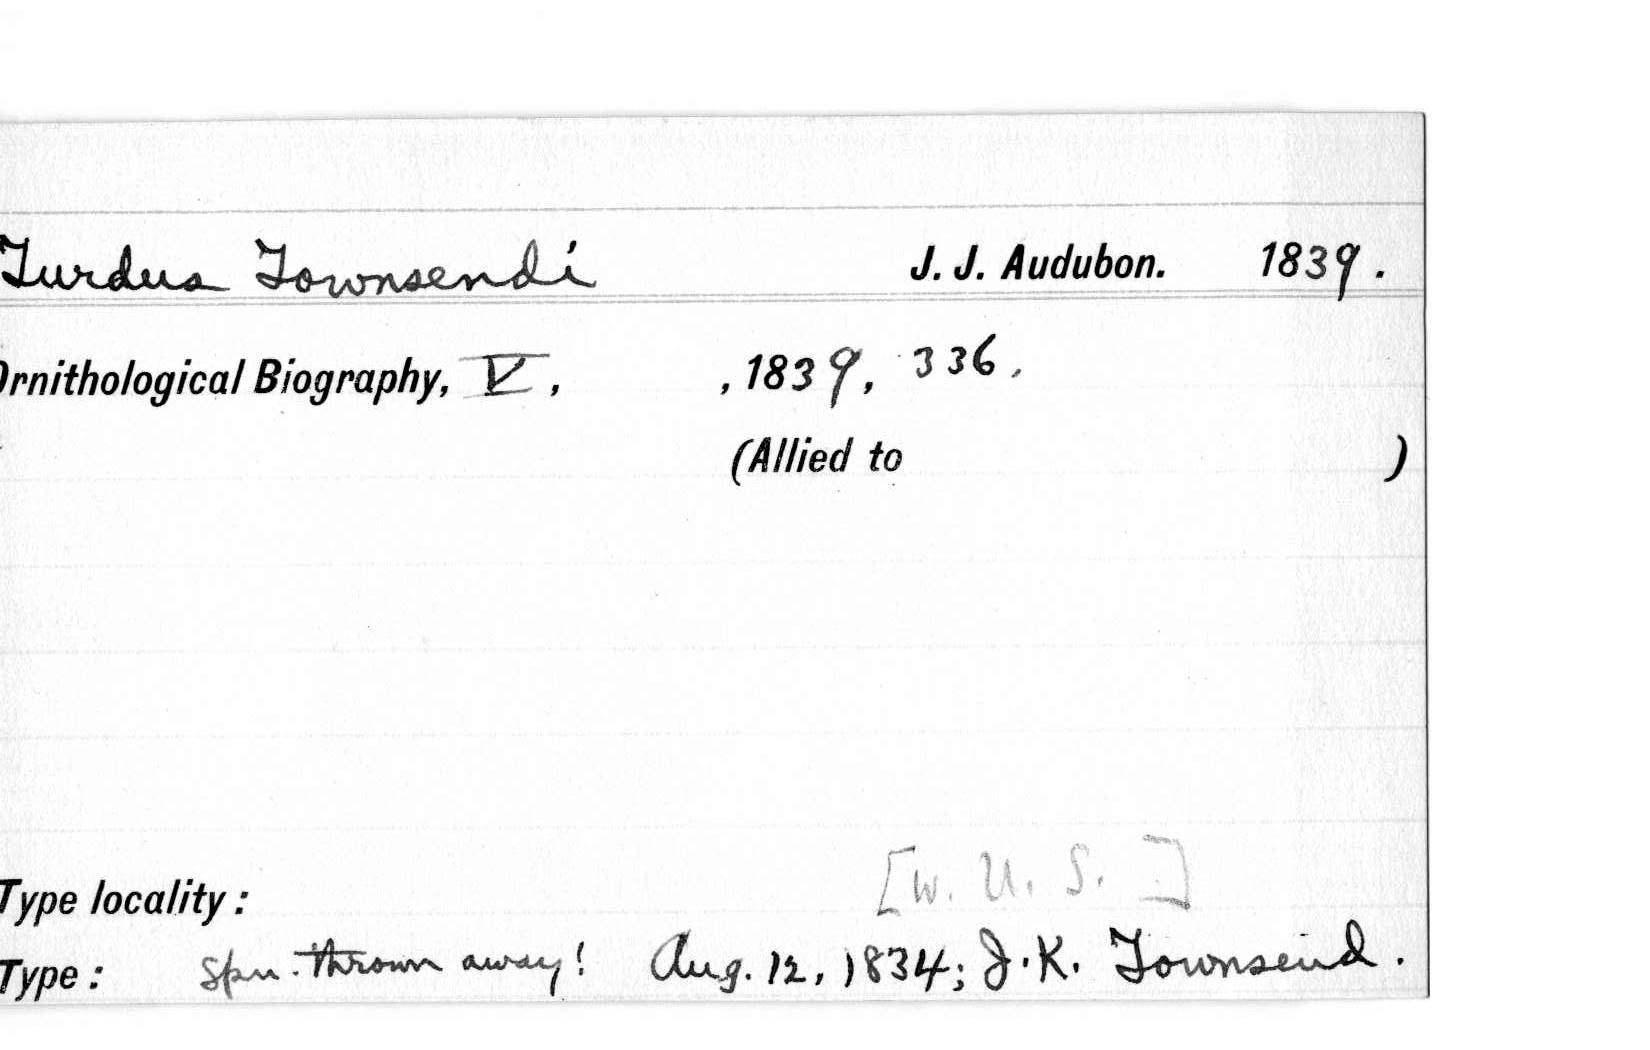 Turdus Townsendi J. J. Audubon. 1839.
Ornithological Biography, V, , 1839, 336.
(Allied to )
[W. U. S. ]
Type locality :
Type : Spn. thrown away! Aug. 12, 1834; J. K. Townsend.